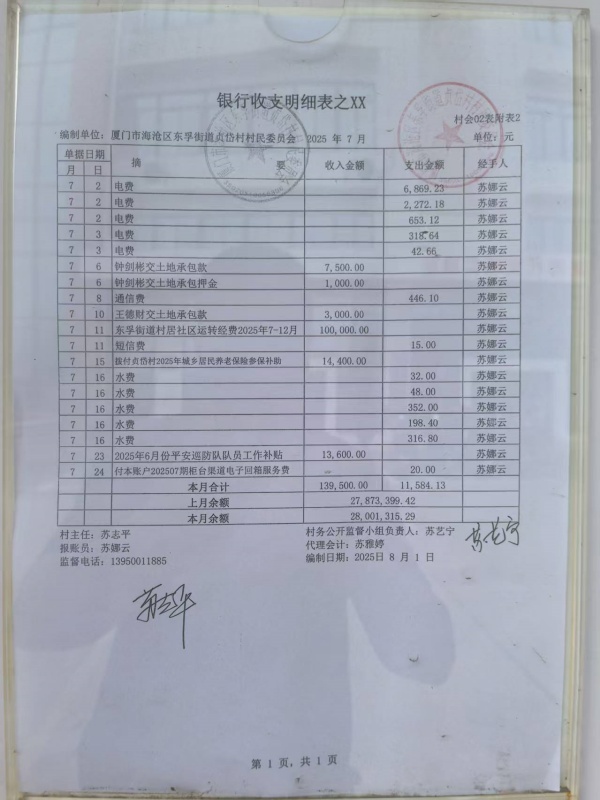 银行收支明细表之XX
村会02表附表2
编制单位：厦门市海沧区东孚街道贞岱村村民委员会 2025 年 7 月 单位：元
单据日期 摘 要 收入金额 支出金额 经手人
月 日
7 2 电费 6,869.23 苏娜云
7 2 电费 2,272.18 苏娜云
7 2 电费 653.12 苏娜云
7 3 电费 318.64 苏娜云
7 3 电费 42.66 苏娜云
7 6 钟剑彬交土地承包款 7,500.00 苏娜云
7 6 钟剑彬交土地承包押金 1,000.00 苏娜云
7 8 通信费 446.10 苏娜云
7 10 王德财交土地承包款 3,000.00 苏娜云
7 11 东孚街道村居社区运转经费2025年7-12月 100,000.00 苏娜云
7 11 短信费 15.00 苏娜云
7 15 拨付贞岱村2025年城乡居民养老保险参保补助 14,400.00 苏娜云
7 16 水费 32.00 苏娜云
7 16 水费 48.00 苏娜云
7 16 水费 352.00 苏娜云
7 16 水费 198.40 苏娜云
7 16 水费 316.80 苏娜云
7 23 2025年6月份平安巡防队队员工作补贴 13,600.00 苏娜云
7 24 付本账户202507期柜台渠道电子回箱服务费 20.00 苏娜云
本月合计 139,500.00 11,584.13
上月余额 27,873,399.42
本月余额 28,001,315.29
村主任：苏志平 村务公开监督小组负责人：苏艺宁 苏艺宁
报账员：苏娜云 代理会计：苏雅婷
监督电话：13950011885 编制日期：2025日 8 月 1 日
第 1 页，共 1 页